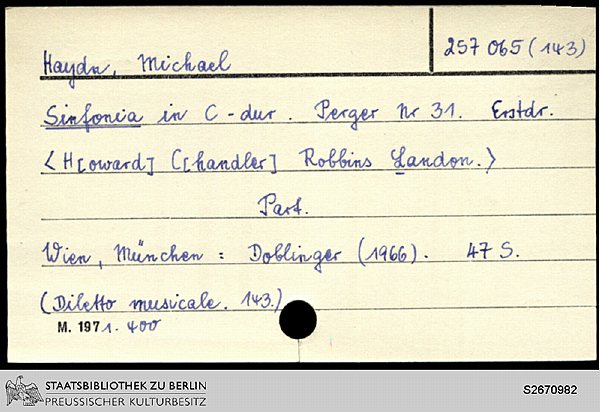 Haydn, Michael 257 065 (143)
Sinfonia in C-dur. Perger Nr 31. Erstdr.
<H[oward] C[handler] Robbins Landon.>
Part.
Wien, München : Doblinger (1966). 47 S.
(Diletto musicale. 143.)
M. 1971. 400
STAATSBIBLIOTHEK ZU BERLIN
PREUSSISCHER KULTURBESITZ
S2670982